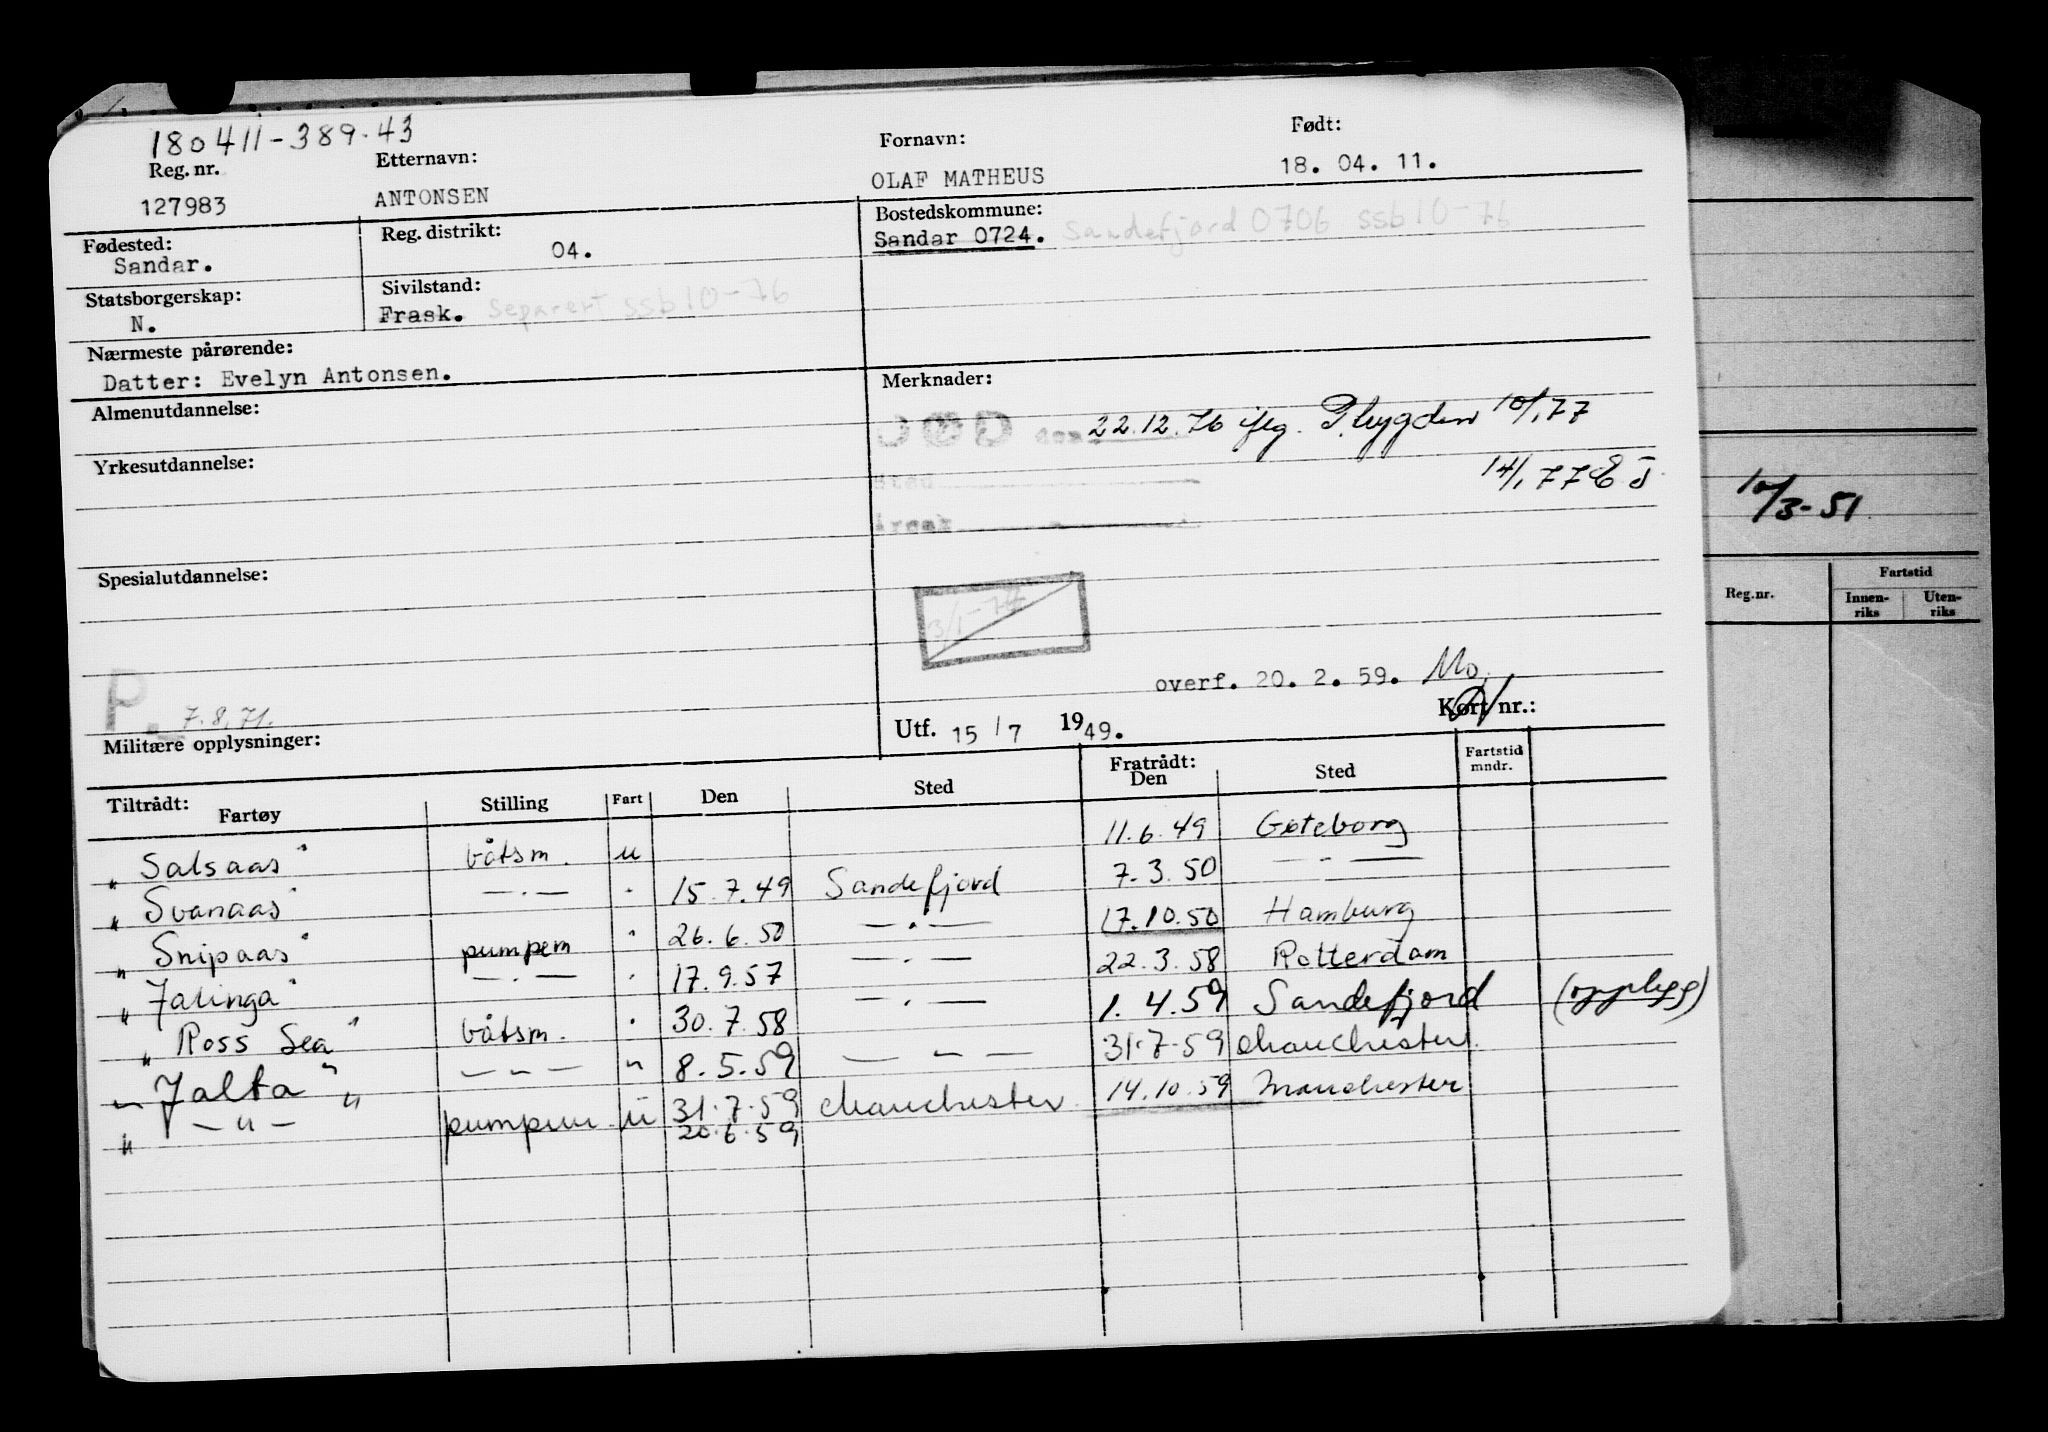 180411-389.43
Reg. nr. Etternavn: Fornavn: Født:
127983 ANTONSEN OLAF MATHEUS 18. 04. 11.
Fødested: Reg. distrikt: Bostedskommune:
Sandar. 04. Sandar 0724. Sandefjord 0706 ssb 10-76
Statsborgerskap: Sivilstand:
N. Frask. Separert ssb 10-76
Nærmeste pårørende:
Datter: Evelyn Antonsen.
Almenutdannelse: Merknader:
DØD 22.12.76 iflg. 10/1.77
Yrkesutdannelse:
sted 14/1.77
årsak
10/3-51
Spesialutdannelse:
3/1-74
Fartstid
Reg.nr. Innen-riks Uten-riks
overf. 20. 2. 59. Mo.
P. 7.8.71.
Militære opplysninger: Utf. 15/7 1949. Kort nr.:
Tiltrådt: Fartøy Stilling Fart Den Sted Fratrådt: Den Sted Fartstid mndr.
"Salsaas" båtsm. u 11.6.49 Gøteborg
"Svanaas" —.— " 15.7.49 Sandefjord 7.3.50 —"—
"Snipaas" pumpem " 26.6.50 —.— 17.10.50 Hamburg
"Jalinga" —.— " 17.9.57 —.— 22.3.58 Rotterdam
"Ross Sea" båtsm. " 30.7.58 —.— 1.4.59 Sandefjord (opplegg)
"Jalta" —"— " 8.5.59 —"— 31.7.59 Manchester
" —"— " pumpem. u 31.7.59 Manchester 14.10.59 Manchester
20.6.59